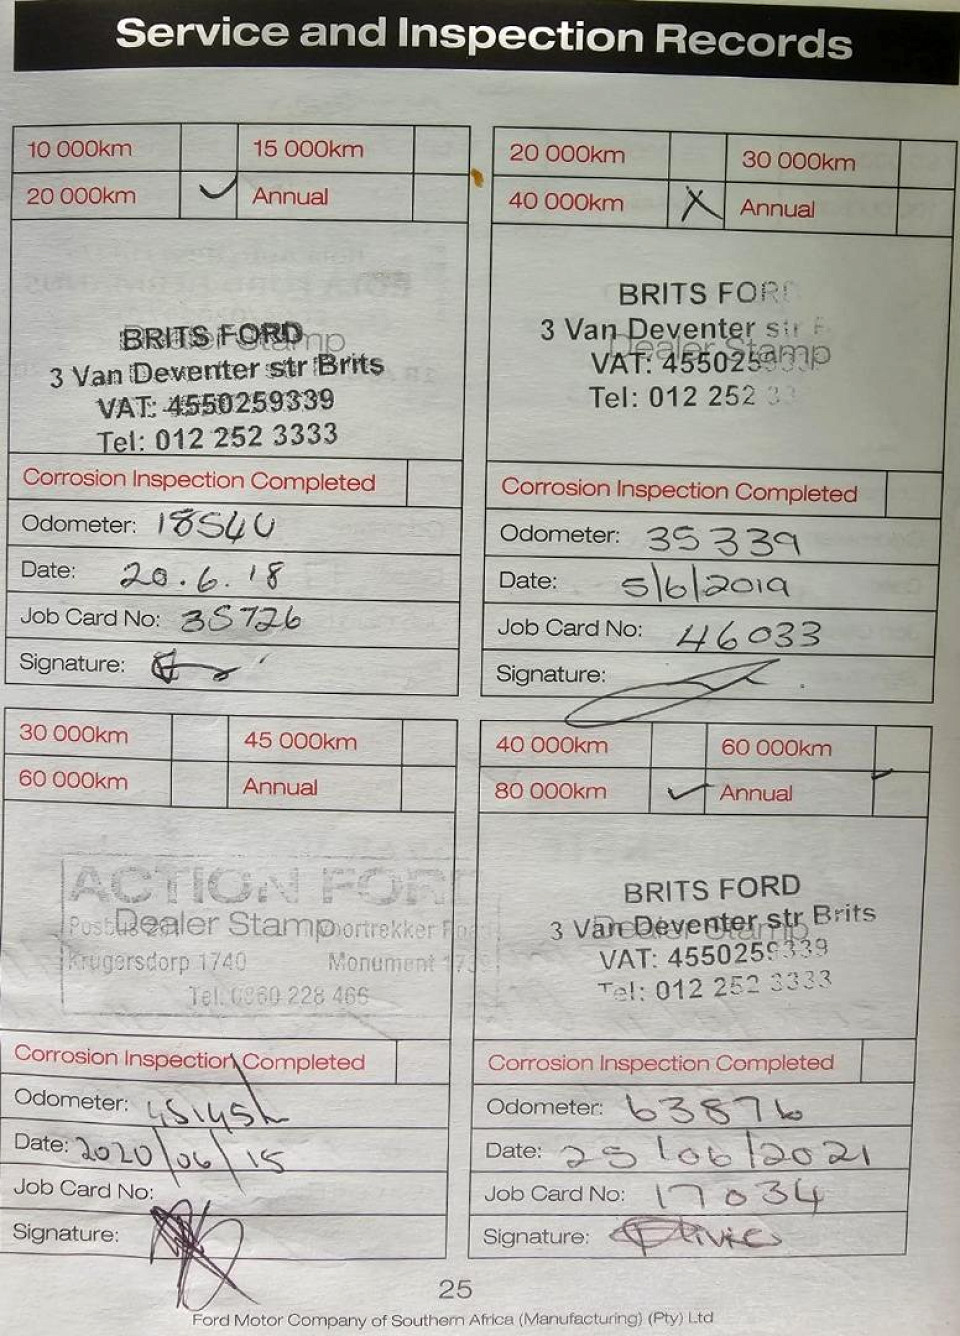 Service and Inspection Records
10 000km 15 000km
20 000km Annual
Dealer Stamp
BRITS FORD
3 Van Deventer str Brits
VAT: 4550259339
Tel: 012 252 3333
Corrosion Inspection Completed
Odometer: 18540
Date: 20.6.18
Job Card No: 35726
Signature:
20 000km 30 000km
40 000km X Annual
Dealer Stamp
BRITS FORD
3 Van Deventer str
VAT: 455025933
Tel: 012 252 33
Corrosion Inspection Completed
Odometer: 35339
Date: 5/6/2019
Job Card No: 46033
Signature:
30 000km 45 000km
60 000km Annual
Dealer Stamp
ACTION FORD
Krugersdorp 1740 Monument 1739
Tel: 0860 228 466
Corrosion Inspection Completed
Odometer:
Date: 2020/06/15
Job Card No:
Signature:
40 000km 60 000km
80 000km Annual
Dealer Stamp
BRITS FORD
3 Van Deventer str Brits
VAT: 4550259339
Tel: 012 252 3333
Corrosion Inspection Completed
Odometer: 63876
Date: 25/06/2021
Job Card No: 17034
Signature:
25
Ford Motor Company of Southern Africa (Manufacturing) (Pty) Ltd